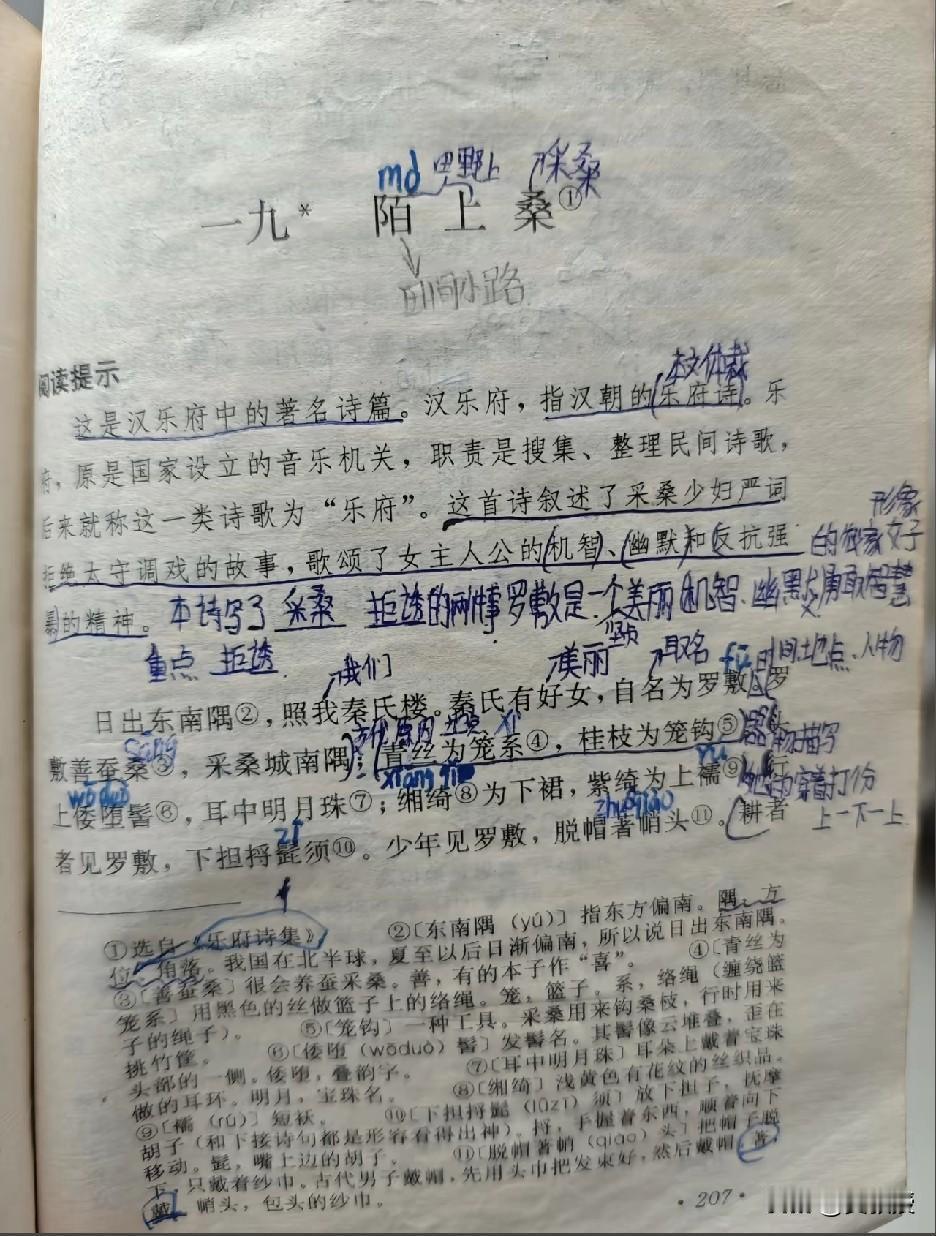 mò 田野上 采桑
一九* 陌上桑①
田间小路
阅读提示
本文体裁
这是汉乐府中的著名诗篇。汉乐府，指汉朝的乐府诗。乐
府，原是国家设立的音乐机关，职责是搜集、整理民间诗歌，
后来就称这一类诗歌为“乐府”。这首诗叙述了采桑少妇严词
形象
拒绝太守调戏的故事，歌颂了女主人公的机智、幽默和反抗强
的 女子
暴的精神。本诗写了 采桑 拒 的两件事 罗敷是一个美丽 机智、幽默 勇敢智慧
重点 拒
我们 美丽 取名 fū 时间地点、人物
日出东南隅②，照我秦氏楼。秦氏有好女，自名为罗敷。罗
sāng xì
敷善蚕桑③，采桑城南隅；青丝为笼系④，桂枝为笼钩⑤。头
描写
wōduò xiāngqǐ rú
上倭堕髻⑥，耳中明月珠⑦；缃绮⑧为下裙，紫绮为上襦⑨。行
的穿着打扮
zī zhuóqiào
上—下—上
者见罗敷，下担捋髭须⑩。少年见罗敷，脱帽著帩头⑪。耕者
①选自《乐府诗集》 ②〔东南隅（yú）〕指东方偏南。隅，方
位、角落。我国在北半球，夏至以后日渐偏南，所以说日出东南隅。
③〔善蚕桑〕很会养蚕采桑。善，有的本子作“喜”。 ④〔青丝为
笼系〕用黑色的丝做篮子上的络绳。笼，篮子。系，络绳（缠绕篮
子的绳子）。 ⑤〔笼钩〕一种工具。采桑用来钩桑枝，行时用来
挑竹筐。 ⑥〔倭堕（wōduò）髻〕发髻名。其髻像云堆叠，歪在
头部的一侧。倭堕，叠韵字。 ⑦〔耳中明月珠〕耳朵上戴着宝珠
做的耳环。明月，宝珠名。 ⑧〔缃绮〕浅黄色有花纹的丝织品。
⑨〔襦（rú）〕短袄。 ⑩〔下担捋髭（lǚzī）须〕放下担子，抚摩
胡子（和下接诗句都是形容看得出神）。捋，手握着东西，顺着向下
移动。髭，嘴上边的胡子。 ⑪〔脱帽著帩（qiào）头〕把帽子脱
下，只戴着纱巾。古代男子戴帽，先用头巾把发束好，然后戴帽。著，
戴。帩头，包头的纱巾。
·207·